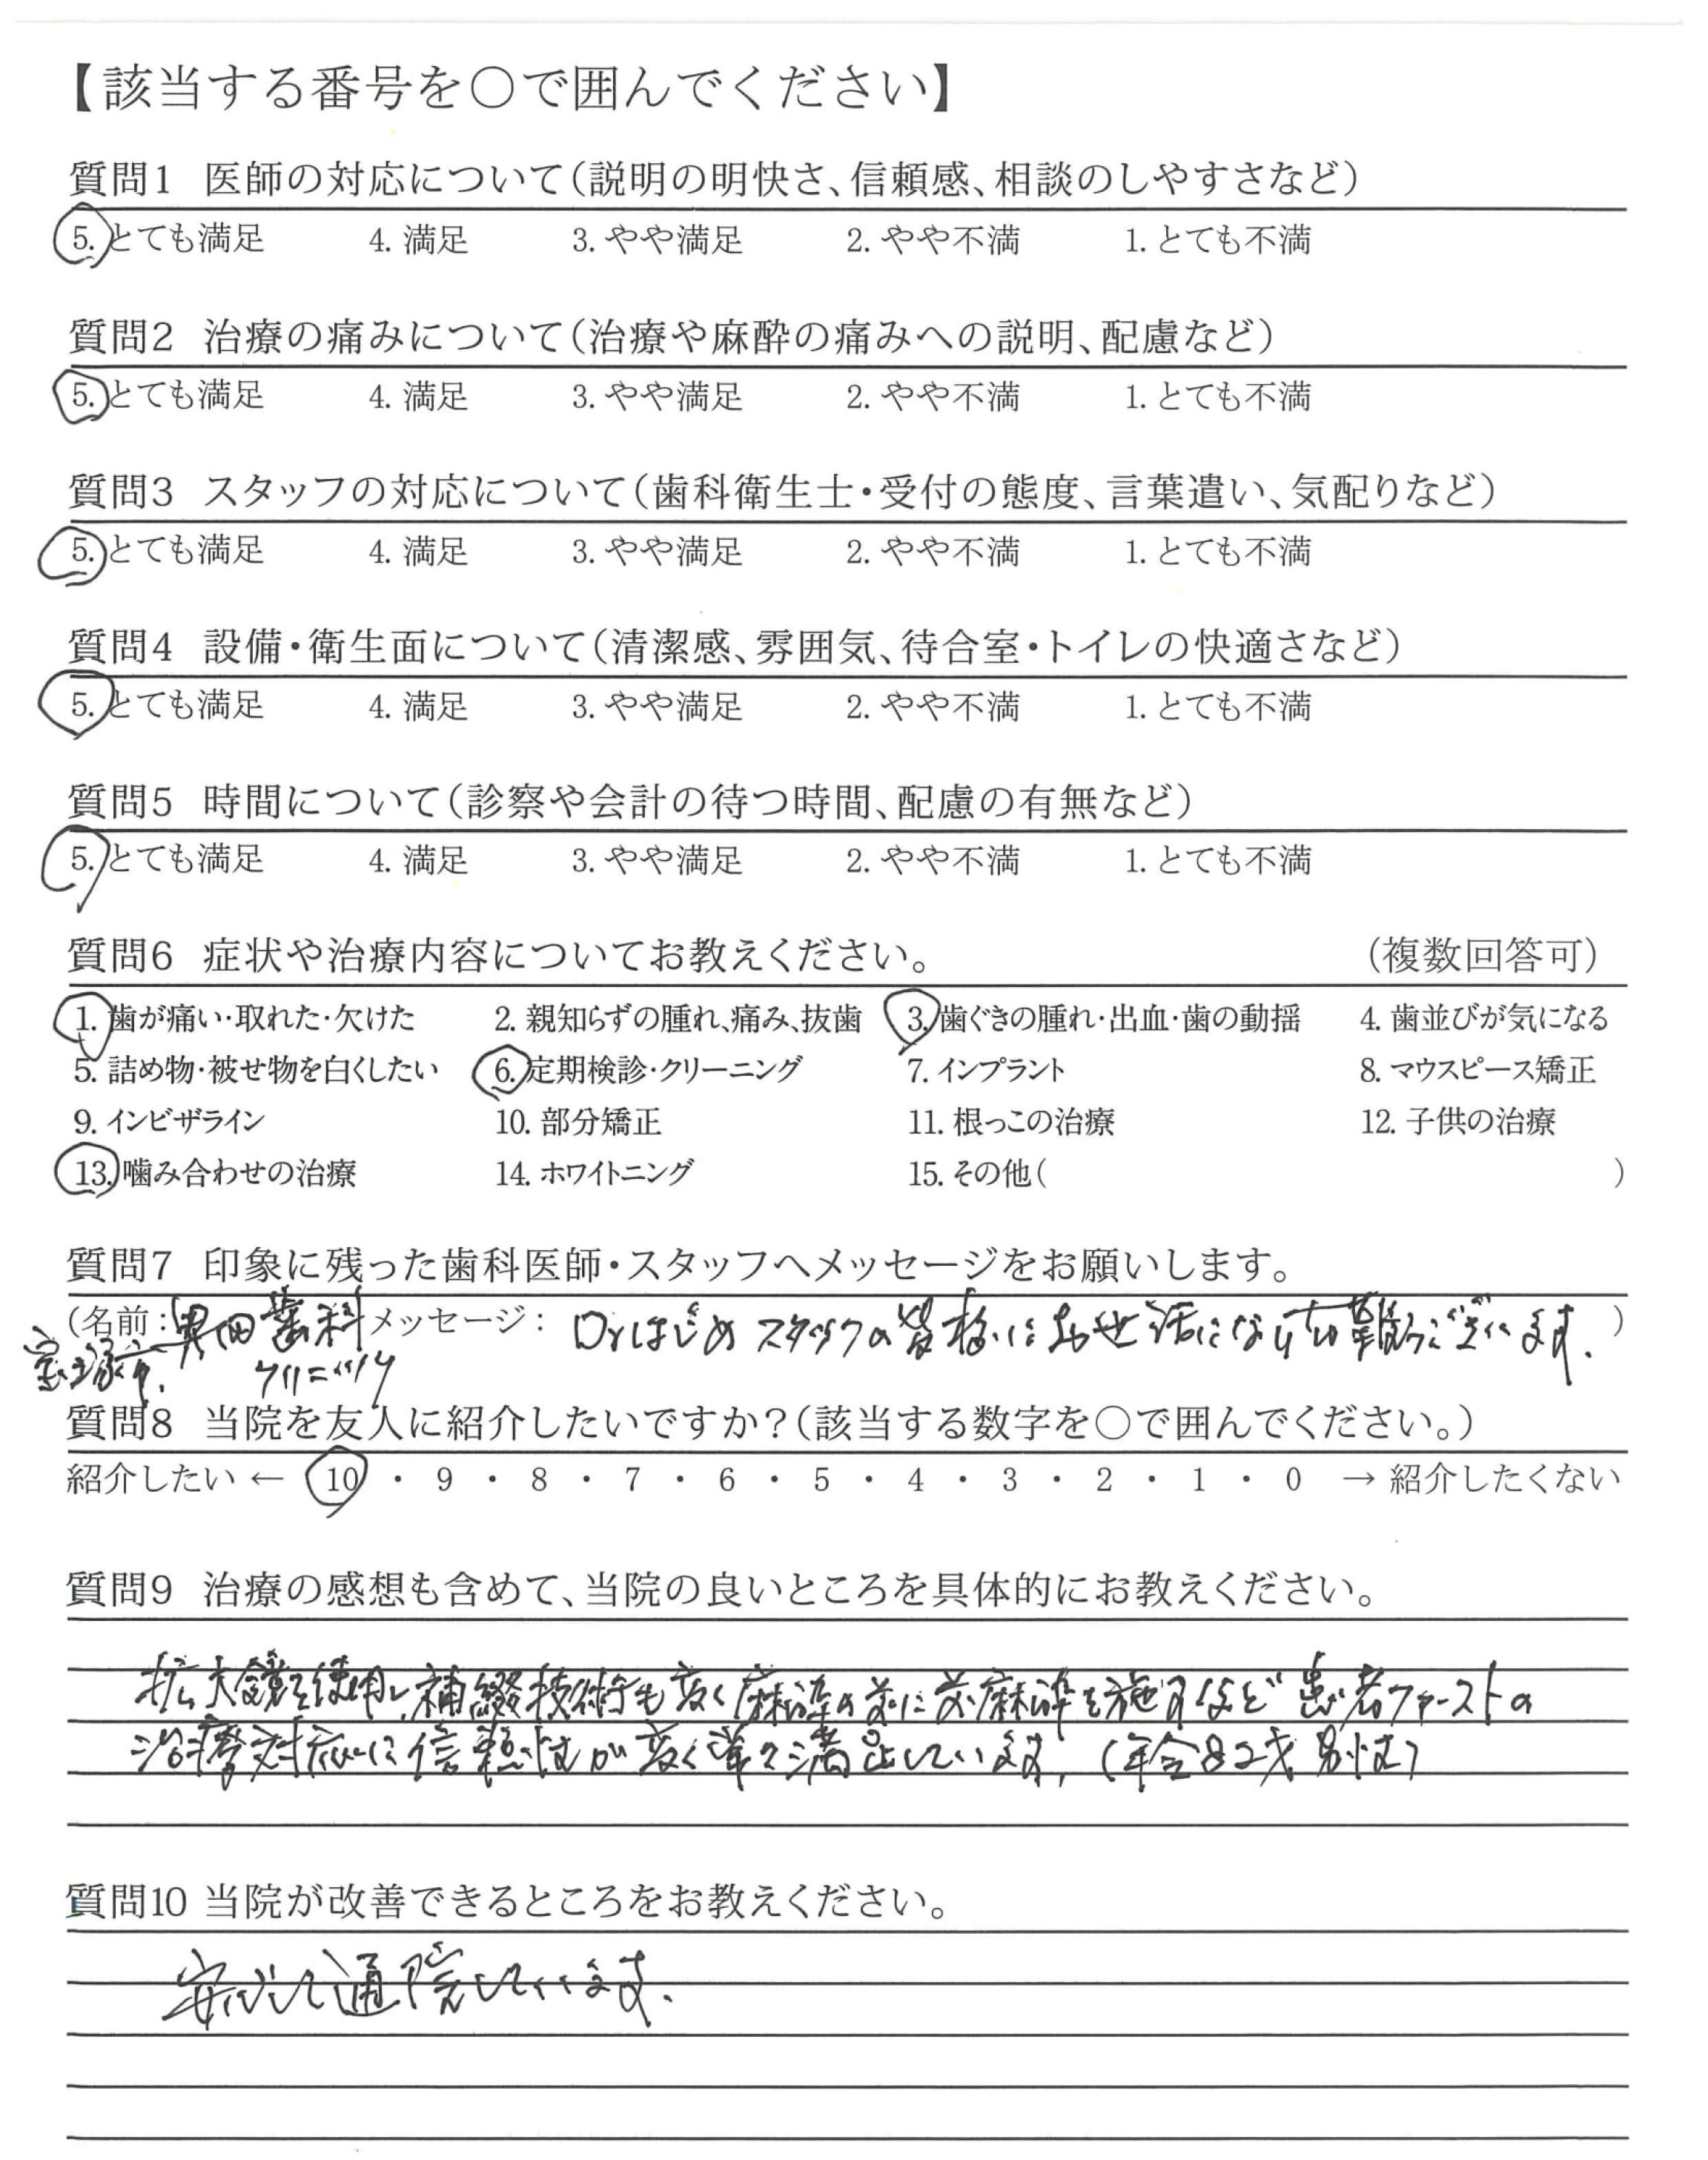 【該当する番号を○で囲んでください】
質問1 医師の対応について(説明の明快さ、信頼感、相談のしやすさなど)
5. とても満足 4. 満足 3. やや満足 2. やや不満 1. とても不満
質問2 治療の痛みについて(治療や麻酔の痛みへの説明、配慮など)
5. とても満足 4. 満足 3. やや満足 2. やや不満 1. とても不満
質問3 スタッフの対応について(歯科衛生士・受付の態度、言葉遣い、気配りなど)
5. とても満足 4. 満足 3. やや満足 2. やや不満 1. とても不満
質問4 設備・衛生面について(清潔感、雰囲気、待合室・トイレの快適さなど)
5. とても満足 4. 満足 3. やや満足 2. やや不満 1. とても不満
質問5 時間について(診察や会計の待つ時間、配慮の有無など)
5. とても満足 4. 満足 3. やや満足 2. やや不満 1. とても不満
質問6 症状や治療内容についてお教えください。 (複数回答可)
1. 歯が痛い・取れた・欠けた 2. 親知らずの腫れ、痛み、抜歯 3. 歯ぐきの腫れ・出血・歯の動揺 4. 歯並びが気になる
5. 詰め物・被せ物を白くしたい 6. 定期検診・クリーニング 7. インプラント 8. マウスピース矯正
9. インビザライン 10. 部分矯正 11. 根っこの治療 12. 子供の治療
13. 噛み合わせの治療 14. ホワイトニング 15. その他( )
質問7 印象に残った歯科医師・スタッフへメッセージをお願いします。
(名前: 田歯科 メッセージ: Drはじめスタッフの皆様にお世話になり有難うございます. )
宝塚市. クリニック
質問8 当院を友人に紹介したいですか?(該当する数字を○で囲んでください。)
紹介したい ← 10 ・ 9 ・ 8 ・ 7 ・ 6 ・ 5 ・ 4 ・ 3 ・ 2 ・ 1 ・ 0 → 紹介したくない
質問9 治療の感想も含めて、当院の良いところを具体的にお教えください。
拡大鏡を使用し、補綴技術も高く麻酔の前に前麻酔を施すなど患者ファーストの
治療対応に信頼性が高く満足しています. (年令82才男性)
質問10 当院が改善できるところをお教えください。
安心して通院しています.